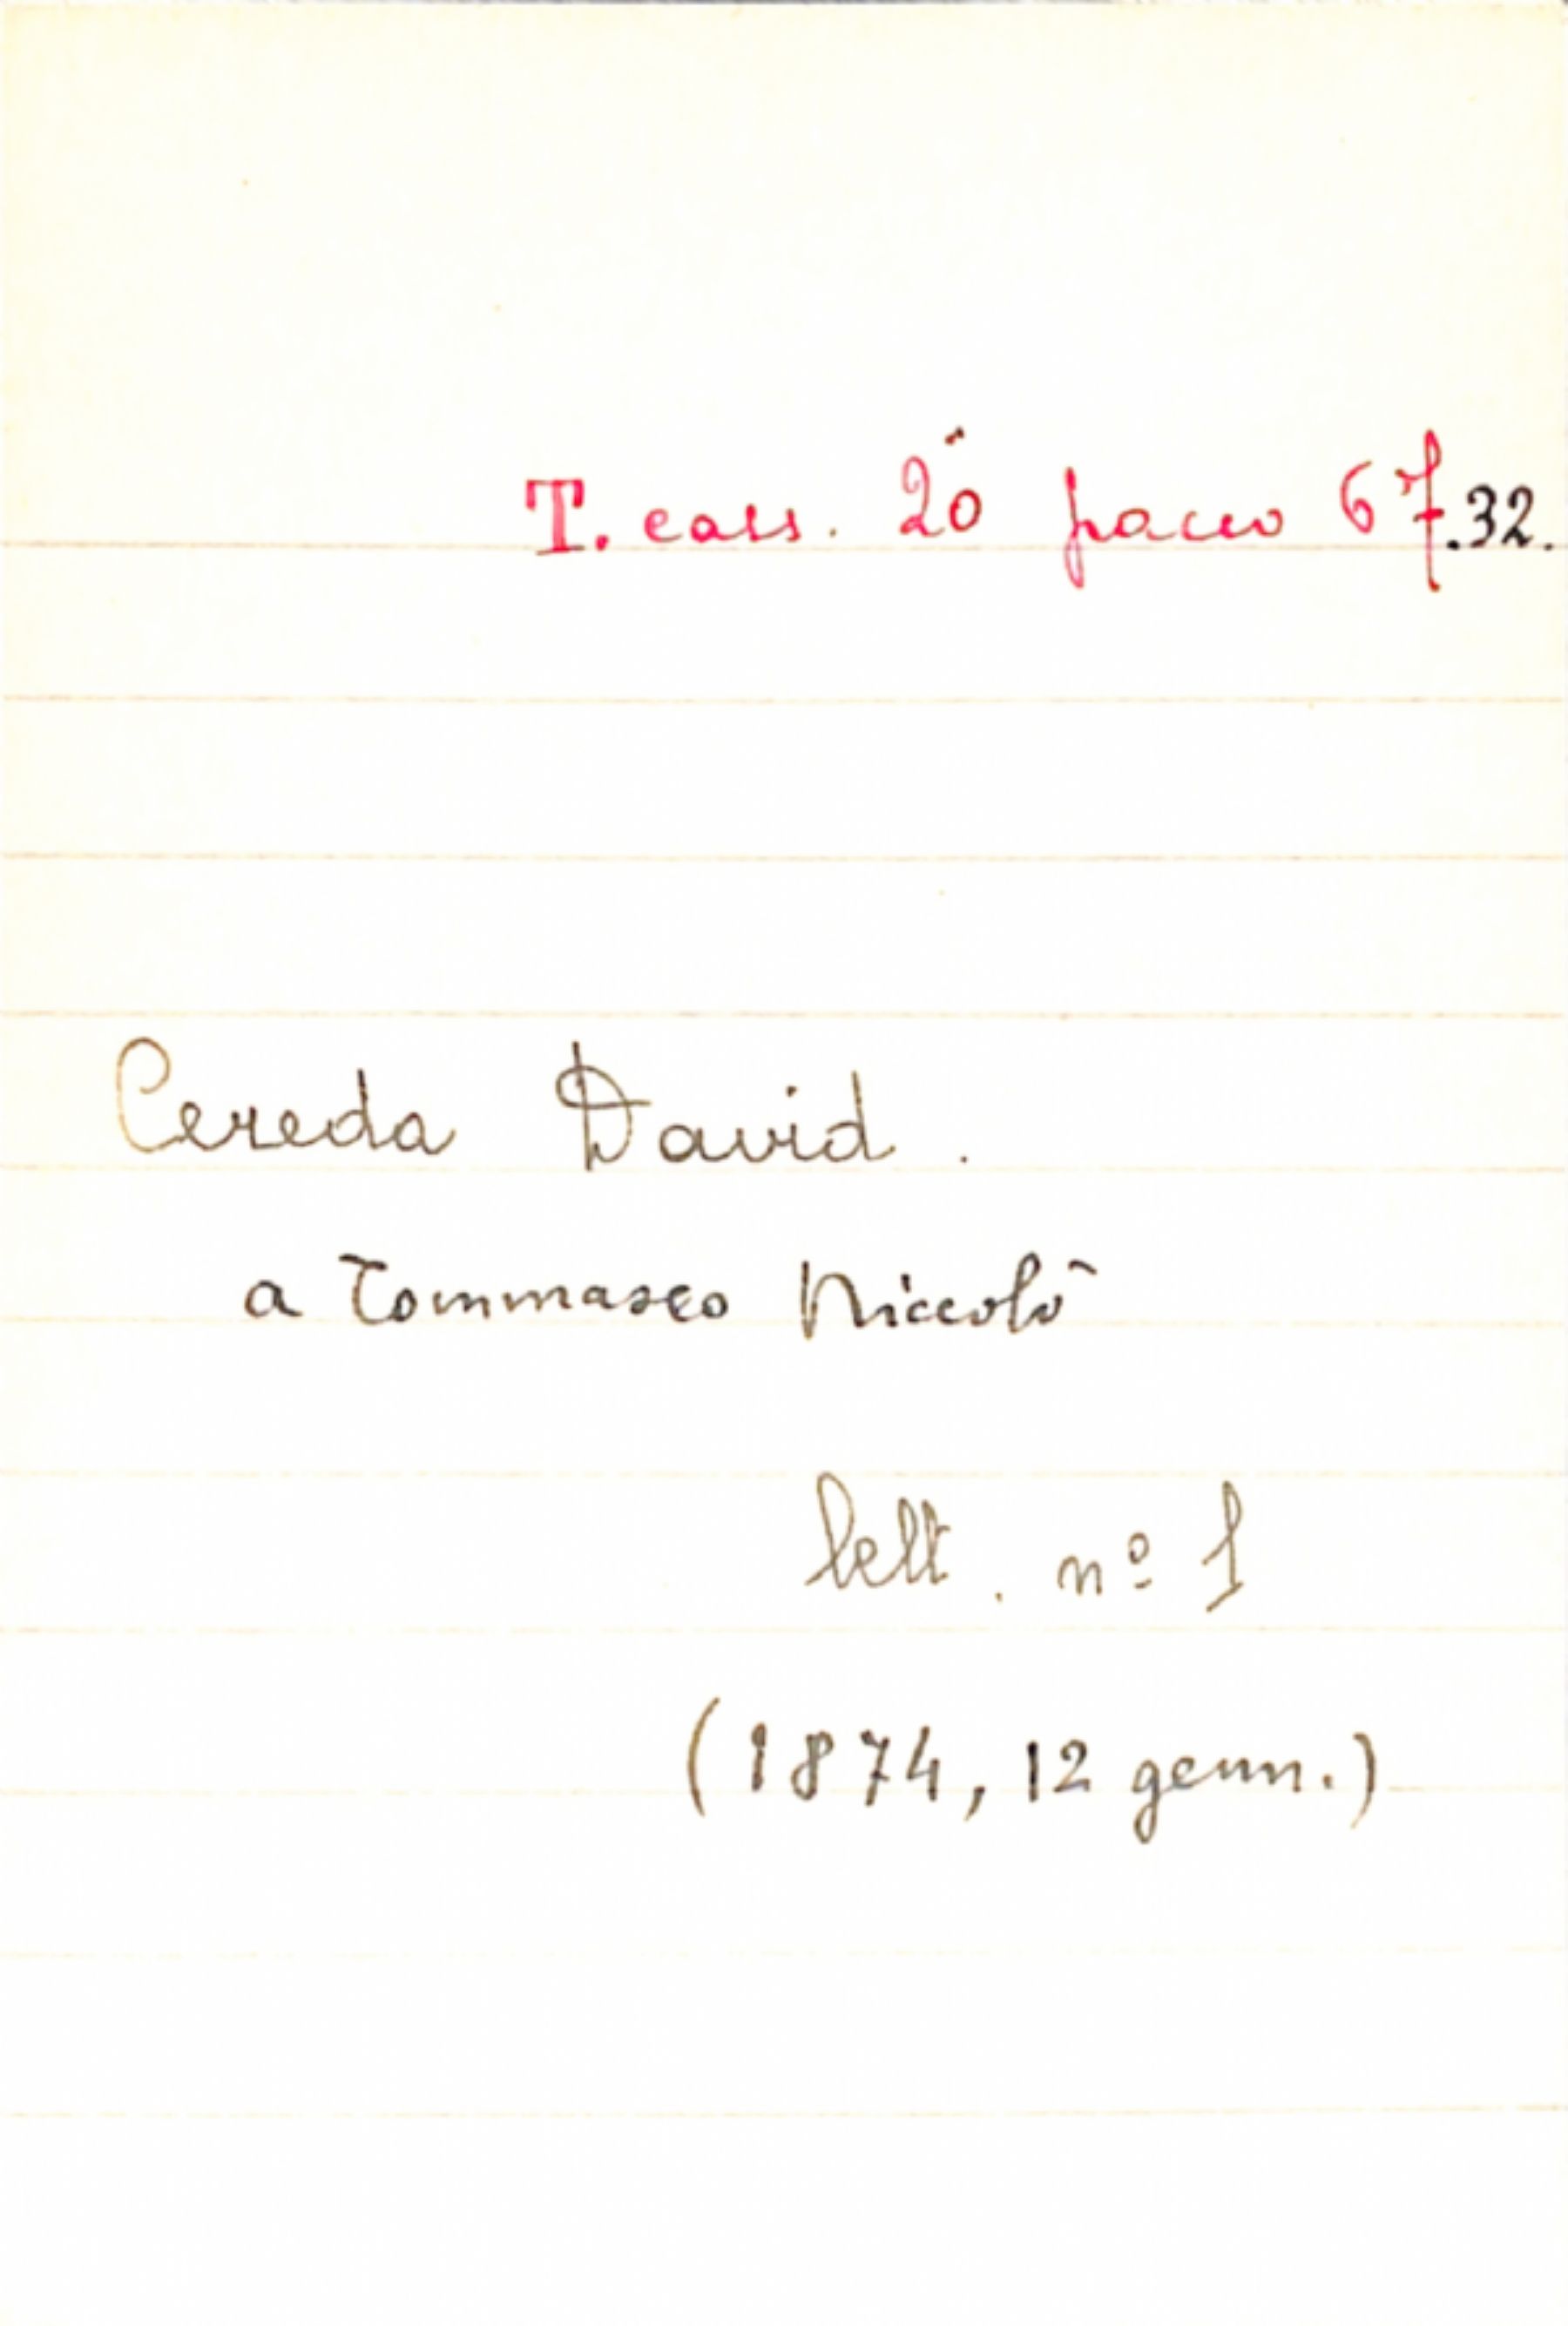 T. cass. 20 pacco 67.32.
Cereda David.
a Tommaseo Niccolò
lett. nº 1
(1874, 12 genn.)